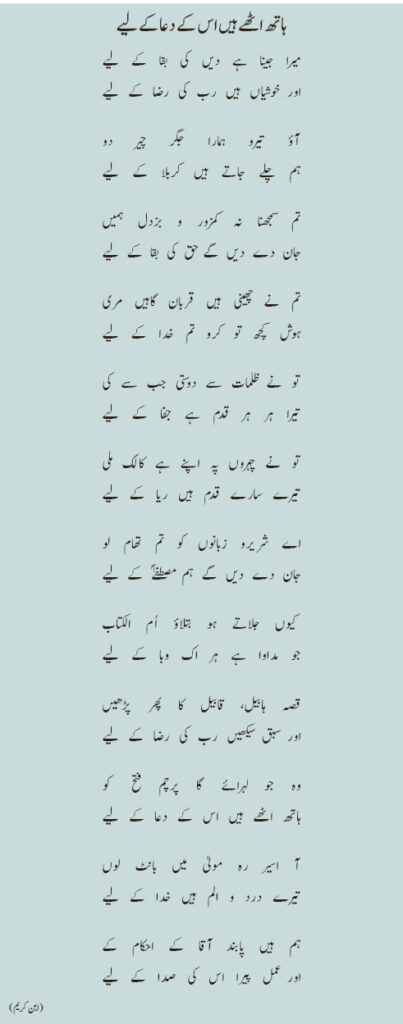 ہاتھ اٹھے ہیں اس کے دعا کے لیے
میرا جینا ہے دیں کی بقا کے لیے
اور خوشیاں ہیں رب کی رضا کے لیے
آؤ تیرو ہمارا جگر چیر دو
ہم چلے جاتے ہیں کربلا کے لیے
تم سمجھنا نہ کمزور و بزدل ہمیں
جان دے دیں گے حق کی بقا کے لیے
تم نے چھینی ہیں قربان گاہیں مری
ہوش کچھ تو کرو تم خدا کے لیے
تو نے ظلمات سے دوستی جب سے کی
تیرا ہر ہر قدم ہے جفا کے لیے
تو نے چہروں پہ اپنے ہے کالک ملی
تیرے سارے قدم ہیں ریا کے لیے
اے شریرو زبانوں کو تم تھام لو
جان دے دیں گے ہم مصطفیٰؐ کے لیے
کیوں جلاتے ہو بتلاؤ اُم الکتاب
جو مداوا ہے ہر اک وبا کے لیے
قصہ ہابیل، قابیل کا پھر پڑھیں
اور سبق سیکھیں رب کی رضا کے لیے
وہ جو لہرائے گا پرچم فتح کو
ہاتھ اٹھے ہیں اس کے دعا کے لیے
آ اسیر رہ مولیٰ میں بانٹ لوں
تیرے درد و الم ہیں خدا کے لیے
ہم ہیں پابند آقا کے احکام کے
اور عمل پیرا اس کی صدا کے لیے
(ابن کریم)